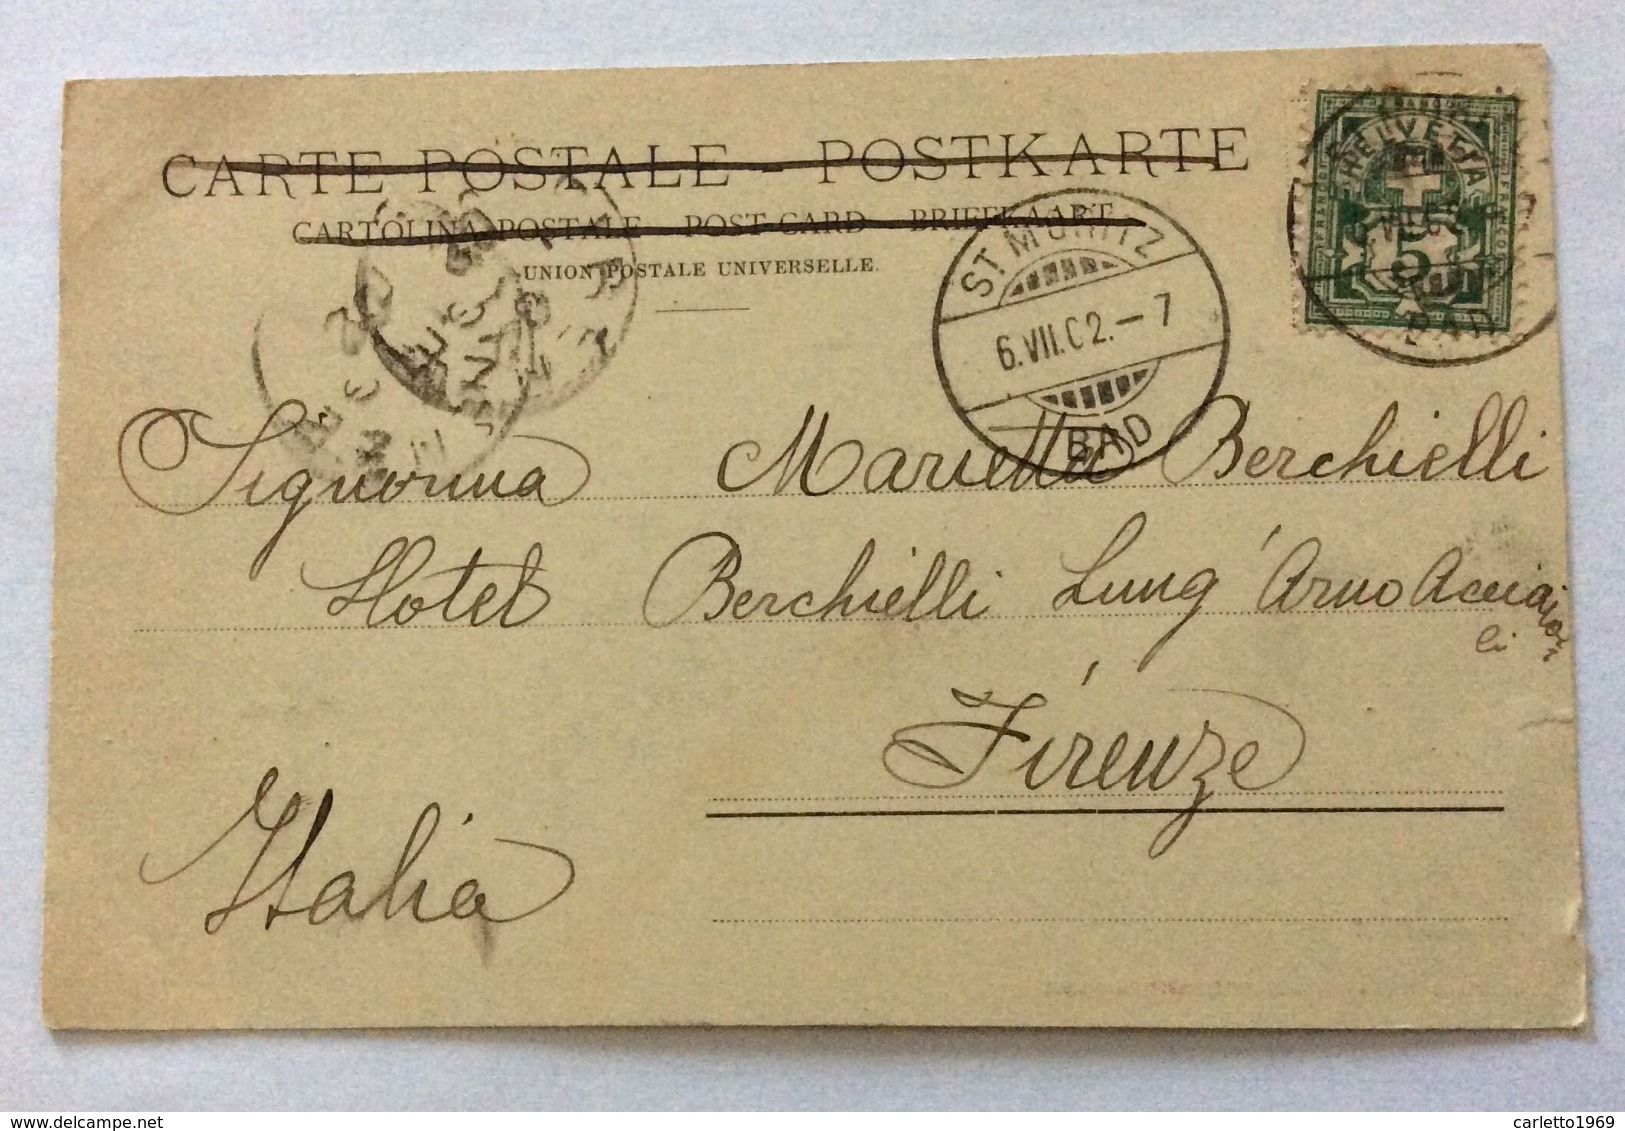 CARTE POSTALE - POSTKARTE
CARTOLINA POSTALE POST-CARD BRIEFKAART
UNION POSTALE UNIVERSELLE.
HELVETIA
5
FRANCO
BAD
ST. MORITZ
6.VII.02.-7
BAD
FIRENZE
Signorina Marietta Berchielli
Hotel Berchielli Lung'Arno Acciaioli
Firenze
Italia
delcampe.net
carletto1969